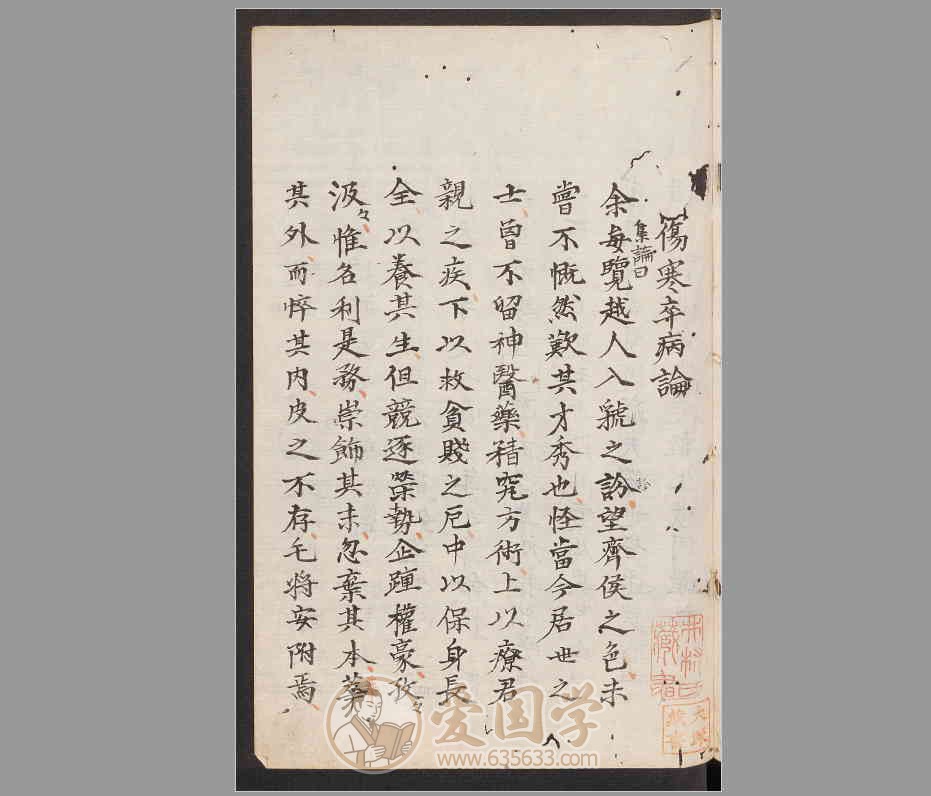 傷寒卒病論
集論曰
余每覽越人入虢之診望齊侯之色未
嘗不慨然歎其才秀也怪當今居世之
士曾不留神醫藥精究方術上以療君
親之疾下以救貧賤之厄中以保身長
全以養其生但競逐榮勢企踵權豪孜々
汲々惟名利是務崇飾其末忽棄其本華
其外而悴其内皮之不存毛将安附焉
爱国学
www.635633.com